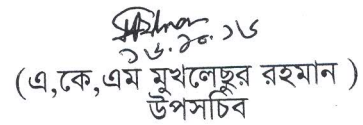 ১৬.১০.১৬
(এ,কে,এম মুখলেছুর রহমান )
উপসচিব